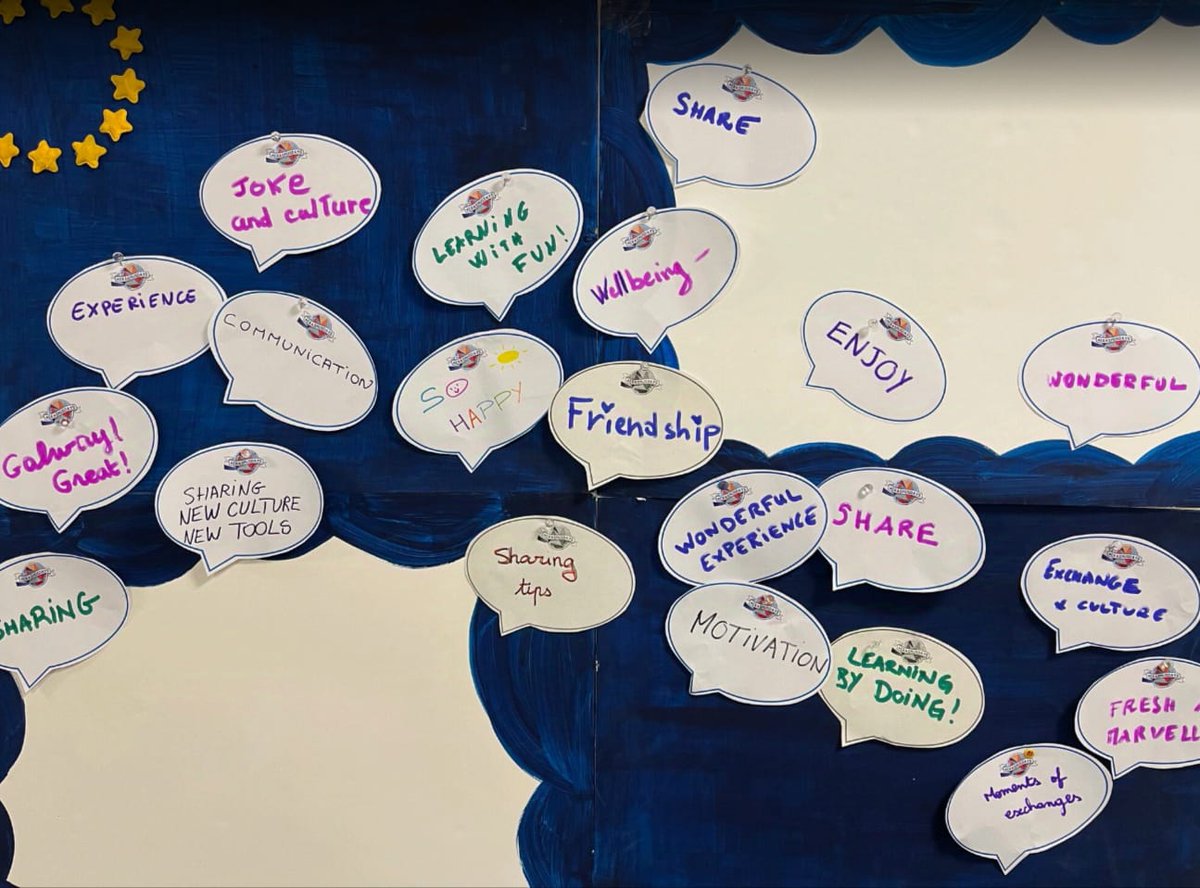 SHARE
JOKE
and culture
LEARNING
WITH
FUN!
Wellbeing -
EXPERIENCE
COMMUNICATION
ENJOY
WONDERFUL
SO
HAPPY
Friendship
Galway!
Great!
SHARING
NEW CULTURE
NEW TOOLS
WONDERFUL
EXPERIENCE
SHARE
Sharing
tips
EXCHANGE
& CULTURE
SHARING
MOTIVATION
LEARNING
BY DOING!
FRESH
MARVELL
Moments of
exchanges